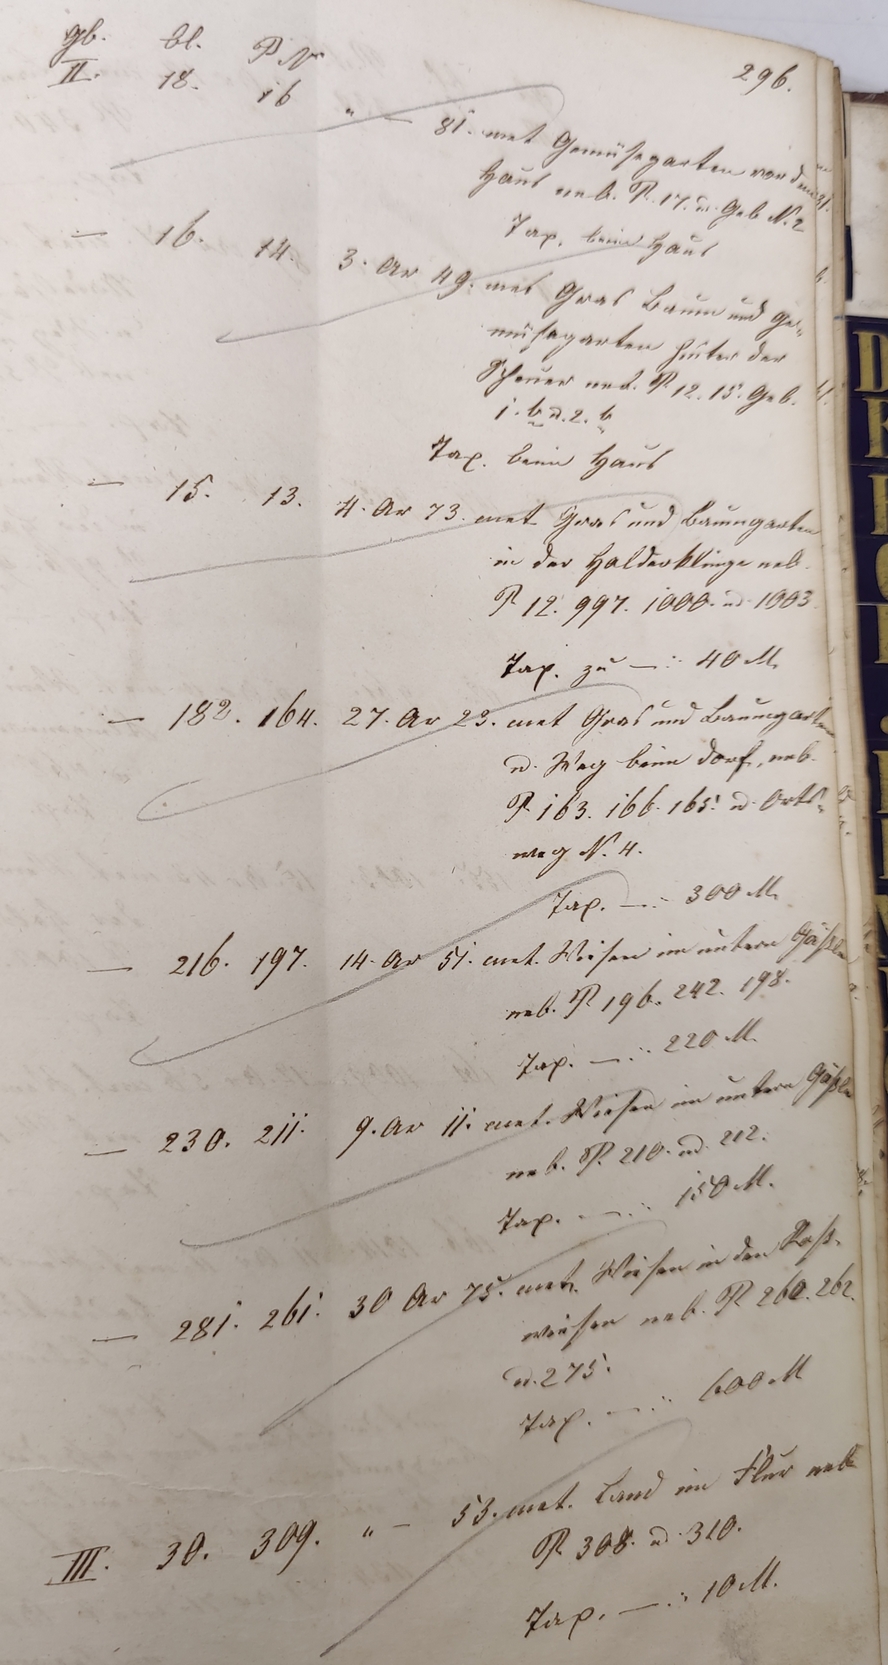 296.
gb. bl. P. Nr
II. 18. 16 " — 81. met Gemüsegarten vor dem
Haus neb. P. 17. u. Geb. N. 2
Tax. beim Haus
— 16. 14. 3. Ar 49. met Gras Baum und Ge-
müsegarten hinter der
Scheuer neb. P. 12. 15. Geb.
1. b u. 2. b
Tax. beim Haus
— 15. 13. 4. Ar 73. met Gras und Baumgarten
in der Halderklinge neb.
P. 12. 997. 1000. u. 1003
Tax. zu —:: 40 M.
— 182. 164. 27. Ar 23. met Gras und Baumgarten
u. Weg beim Dorf, neb.
P. 163. 166. 165. u. Orts-
weg N. 4.
Tax. —:: 300 M.
— 216. 197. 14. Ar 51. met. Wiesen im untern Gäßle
neb. P. 196. 242. 198.
Tax. —:: 220 M.
— 230. 211. 9. Ar 11. met. Wiesen im untern Gäßle
neb. P. 210. u. 212.
Tax. —:: 150 M.
— 281. 261. 30 Ar 75. met. Wiesen in den
wiesen neb. P. 260. 262.
u. 275.
Tax. —:: 600 M
III. 30. 309. " — 53. met. Land im Flur neb
P. 308. u. 310.
Tax. —:: 10 M.